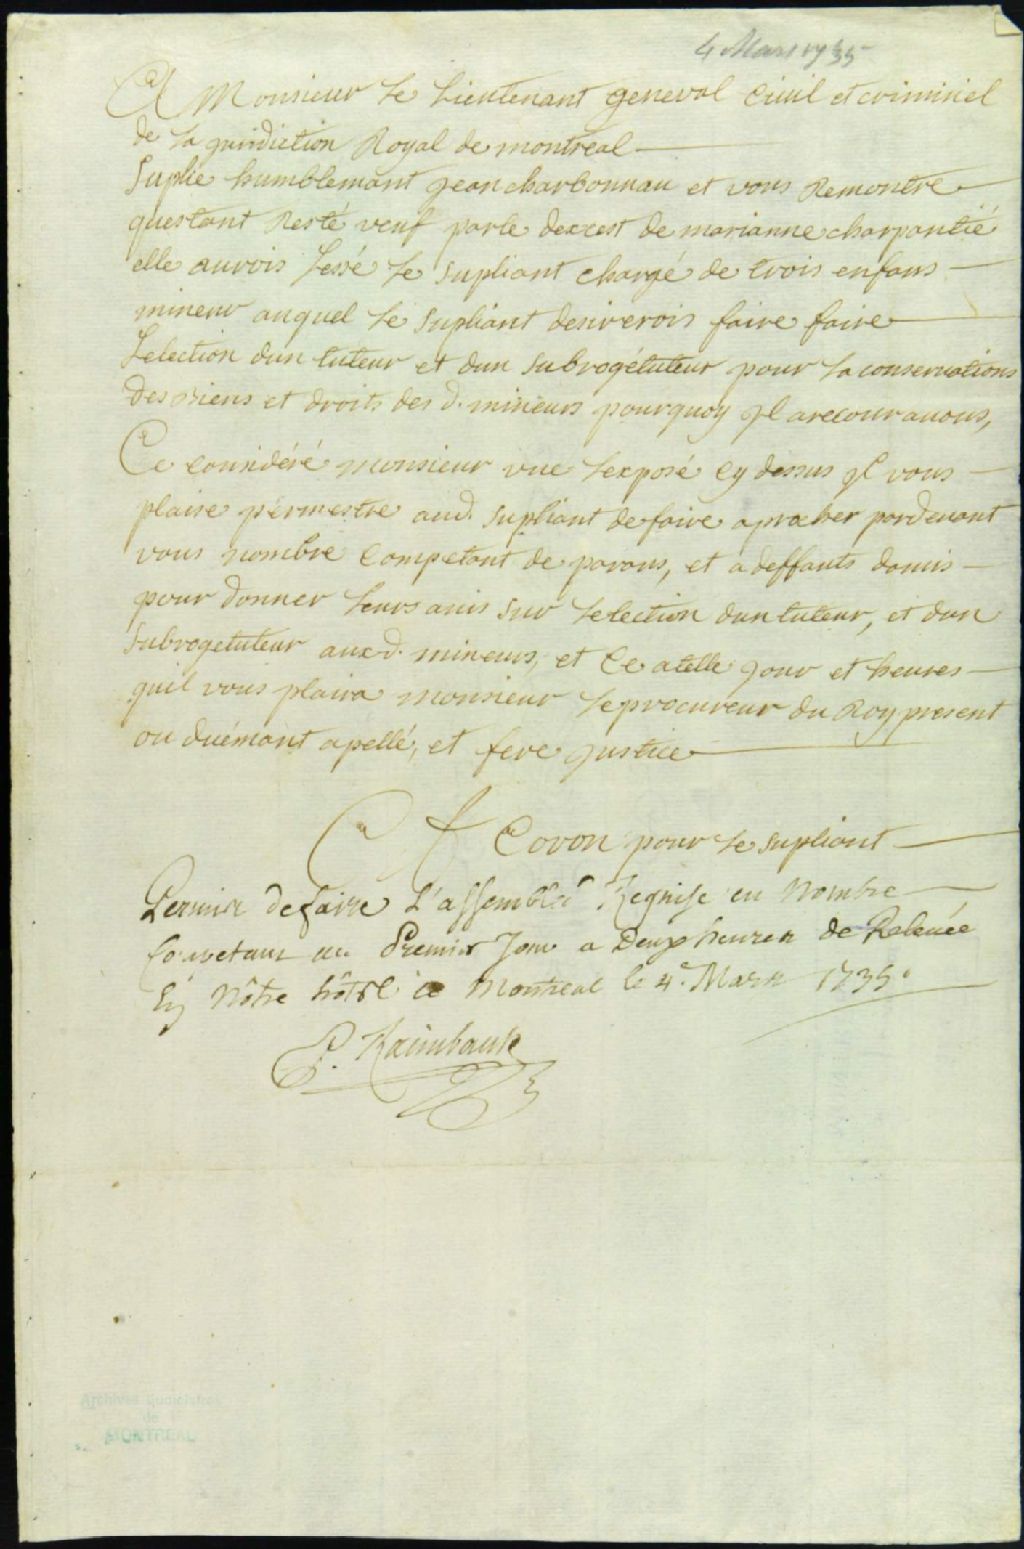 4 Mars 1735
A Monsieur Le Lieutenant general Civil et criminel
de La juridiction Royal de montreal
Suplie humblemant jean charbonnau et vous Remontre
questant Resté veuf parle dexcest de marianne charpantié
elle aurois Lessé Le Supliant chargé de trois enfans
mineur auquel Le Supliant desirerois faire faire
Lelection dun tuteur et dun Subrogétuteur pour La conservations
des biens et droits des d. mineurs pourquoy jl arecour avous,
Ce Considéré monsieur vue Lexposé Cy dessus jl vous
plaise permestre aud. Supliant de faire aprocher pardevant
vous nombre Competant de parans, et adeffauts damis
pour donner Leurs avis Sur Lelection dun tuteur, et dun
Subrogetuteur auxd. mineurs, et Ce atelle jour et heures
quil vous plaira monsieur Leprocureur du Roy present
ou duémant apellé, et fere justice
Coron pour Le Supliant
Permis de faire L'assemblée Requise en Nombre
Competant au Premier Jour a Deux heures de Relevée
En Nôtre hôtel à Montreal le 4e. Mars 1735.
P. Raimbault
Archives Judiciaires
de
MONTREAL